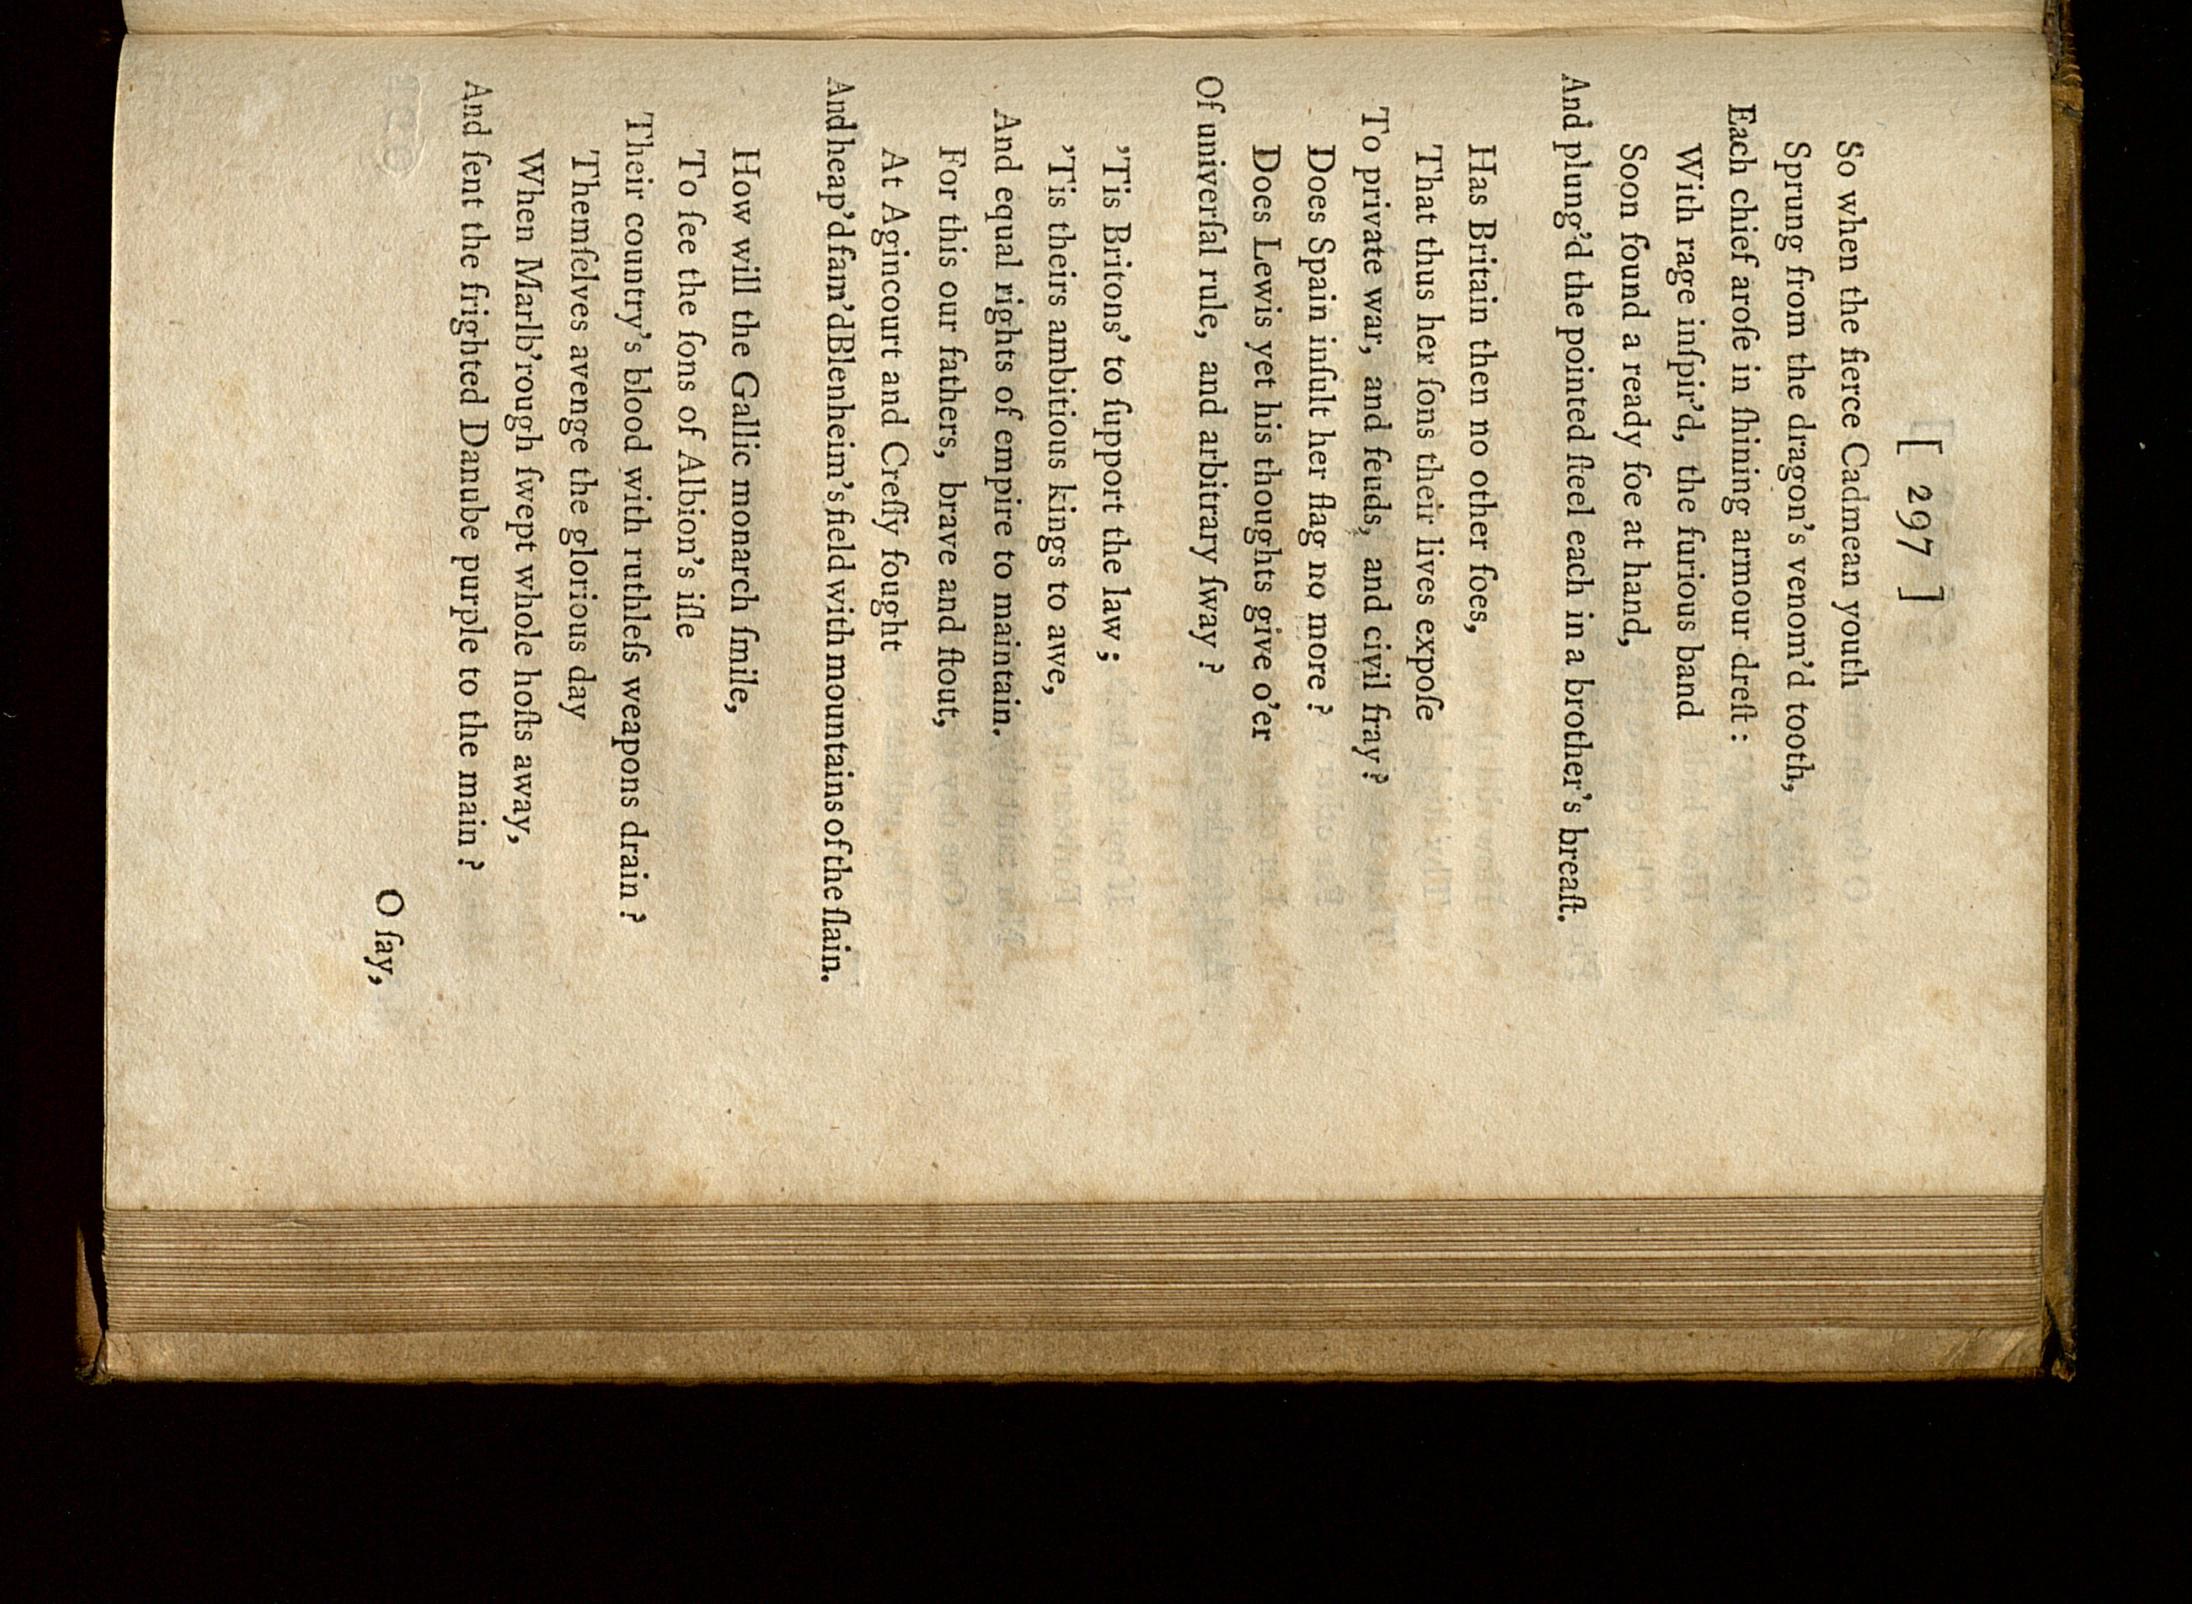 [ 297 ]
So when the fierce Cadmean youth
Sprung from the dragon's venom'd tooth,
Each chief aroſe in ſhining armour dreſt :
With rage inſpir'd, the furious band
Soon found a ready foe at hand,
And plung'd the pointed ſteel each in a brother's breaſt.
Has Britain then no other foes,
That thus her ſons their lives expoſe
To private war, and feuds, and civil fray?
Does Spain inſult her flag no more ?
Does Lewis yet his thoughts give o'er
Of univerſal rule, and arbitrary ſway ?
'Tis Britons' to ſupport the law ;
'Tis theirs ambitious kings to awe,
And equal rights of empire to maintain.
For this our fathers, brave and ſtout,
At Agincourt and Creſſy fought
And heap'd fam'd Blenheim's field with mountains of the ſlain.
How will the Gallic monarch ſmile,
To ſee the ſons of Albion's iſle
Their country's blood with ruthleſs weapons drain ?
Themſelves avenge the glorious day
When Marlb'rough ſwept whole hoſts away,
And ſent the frighted Danube purple to the main ?
O ſay,